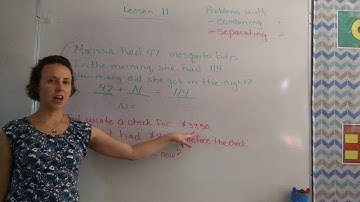 Lesson 11
Problems with
- combining
- separating
Marissa had 47 mosquito bites.
In the morning, she had 114
How many did she get in the night?
47 + N = 114
N =
wrote a check for $37.50
had before the check
now?